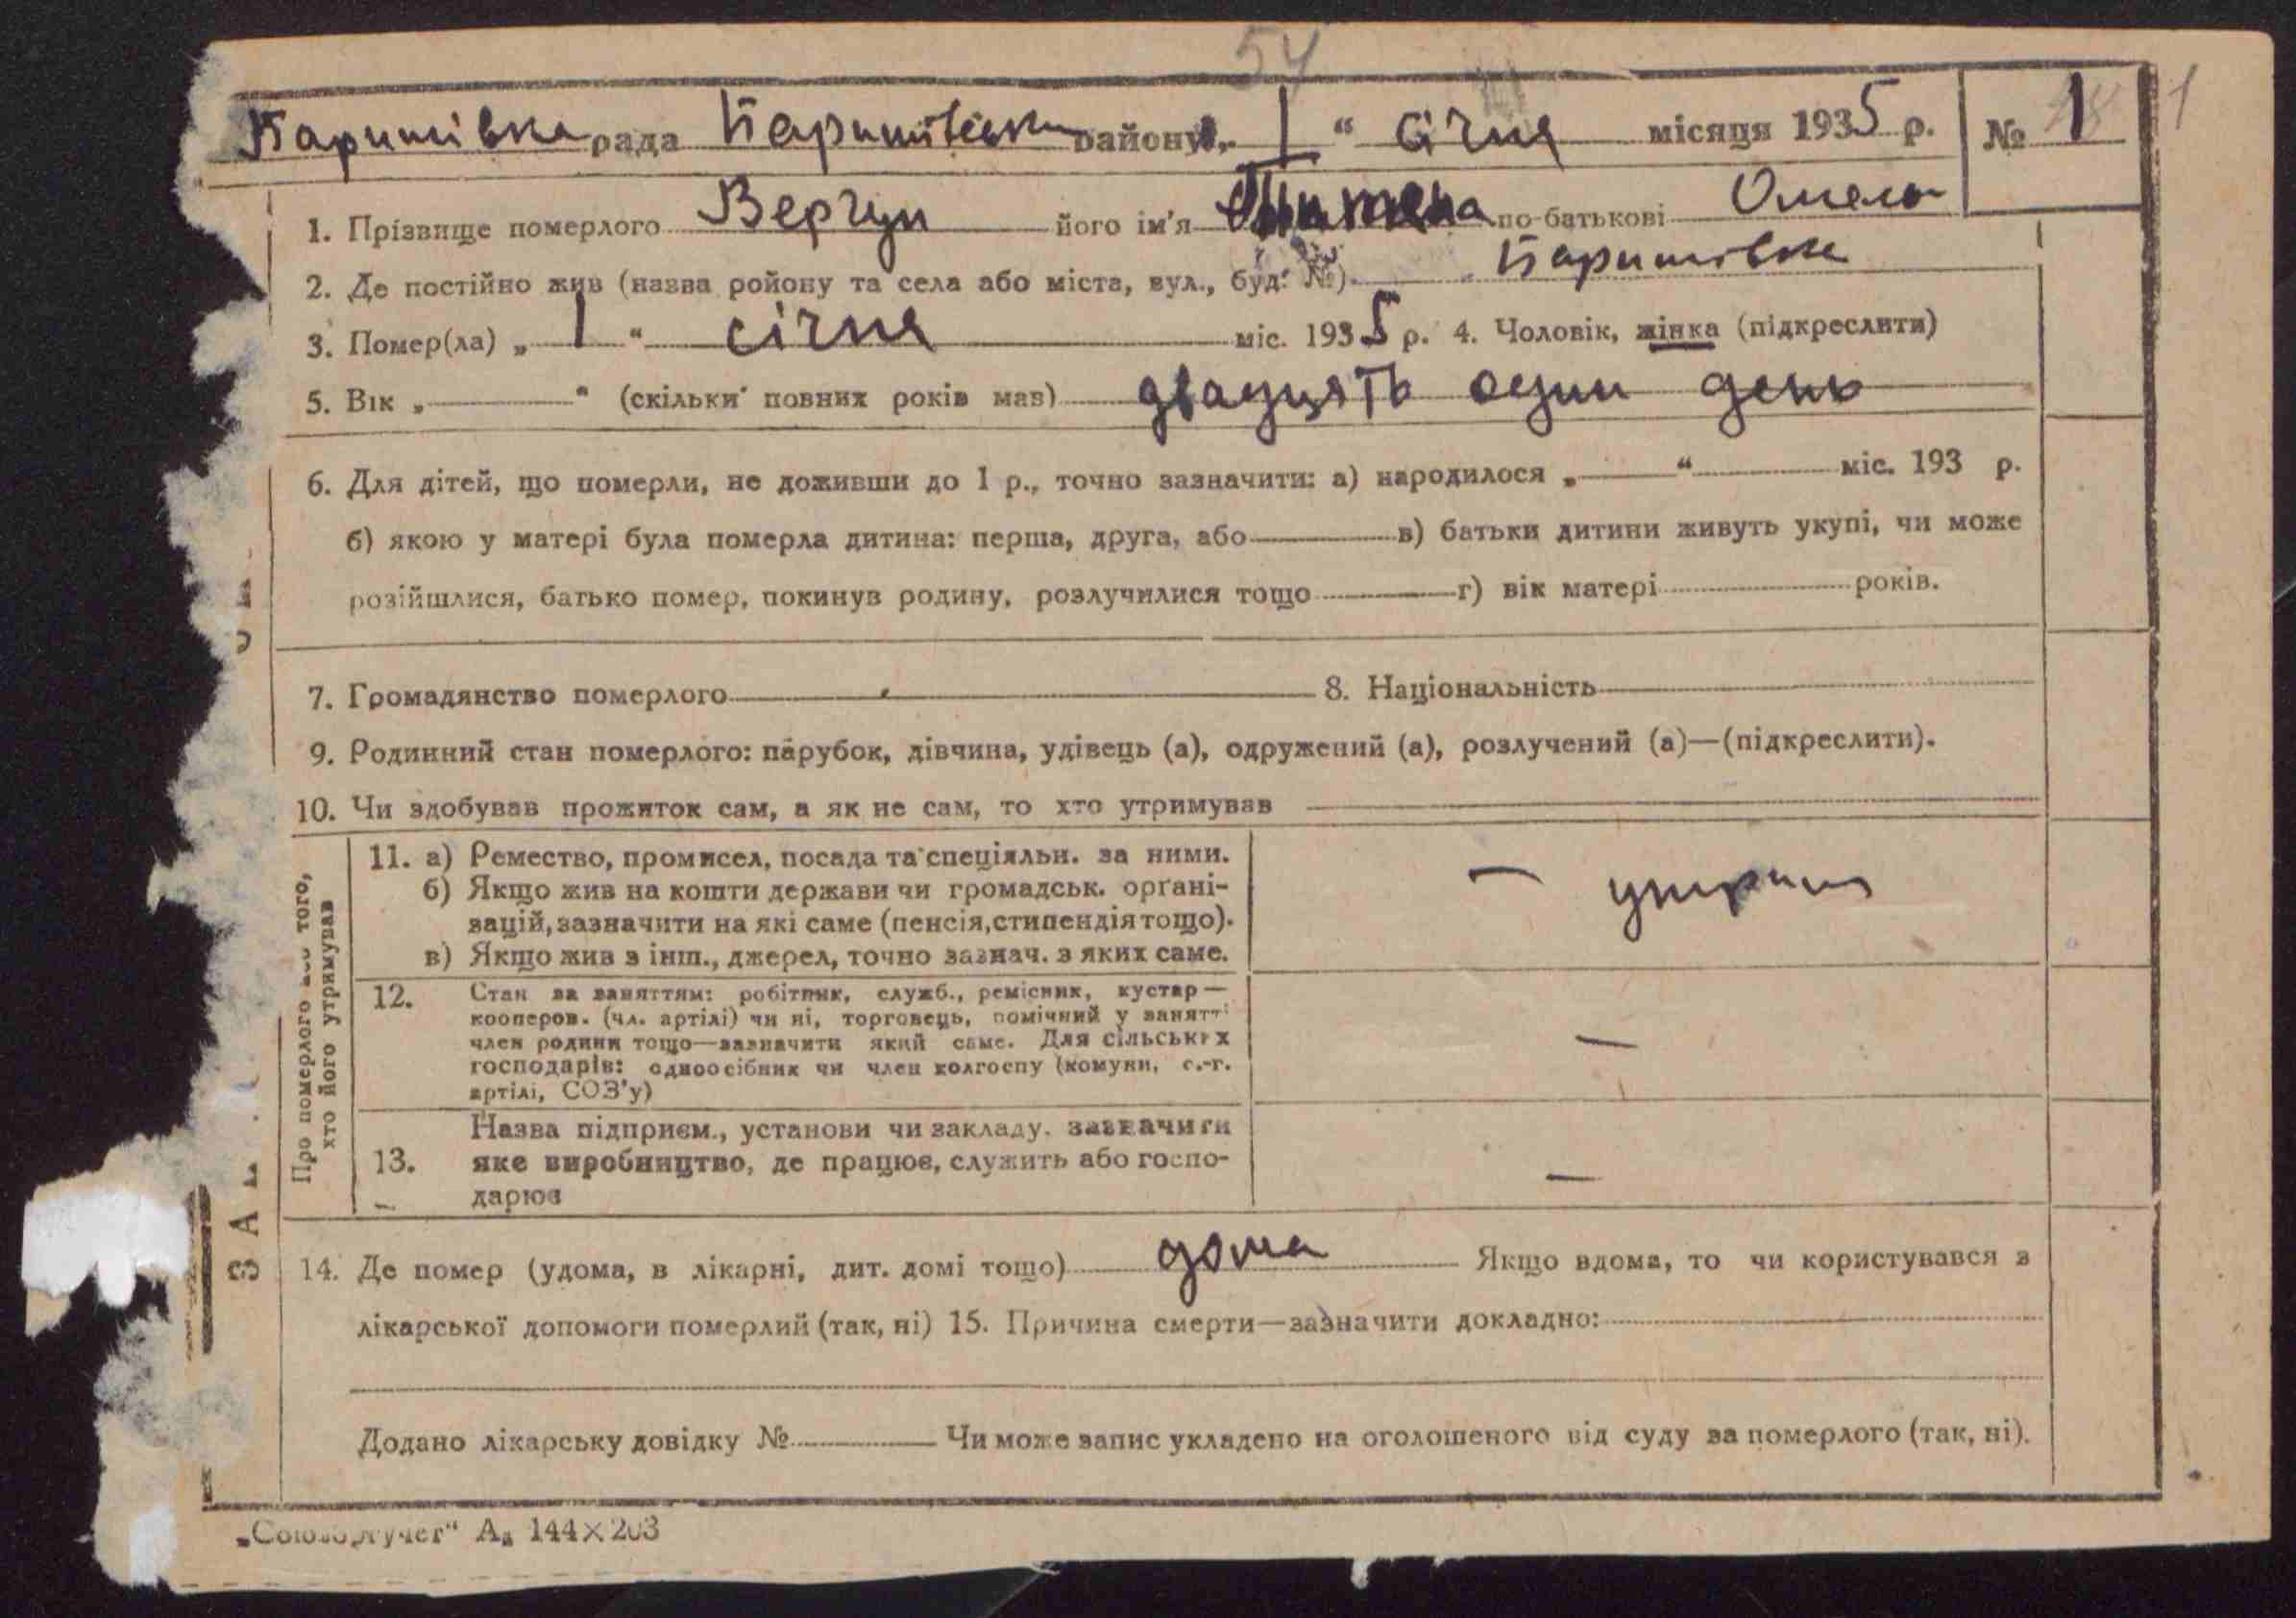 54
Баришівка рада Баришівськ району „ 1 “ січня місяця 1935 р. № 1 1
1. Прізвище померлого Вергун його ім'я по-батькові Омель
2. Де постійно жив (назва ройону та села або міста, вул., буд. №) Баришівка
3. Помер(ла) „ 1 “ січня міс. 1935 р. 4. Чоловік, жінка (підкреслити)
5. Вік „ “ (скільки повних років мав) двадцять один день
6. Для дітей, що померли, не доживши до 1 р., точно зазначити: а) народилося „ “ міс. 193 р.
б) якою у матері була померла дитина: перша, друга, або в) батьки дитини живуть укупі, чи може
розійшлися, батько помер, покинув родину, розлучилися тощо г) вік матері років.
7. Громадянство померлого 8. Національність
9. Родинний стан померлого: парубок, дівчина, удівець (а), одружений (а), розлучений (а)—(підкреслити).
10. Чи здобував прожиток сам, а як не сам, то хто утримував
Про померлого або того,
хто його утримував
11. а) Ремество, промисел, посада та спеціяльн. за ними.
б) Якщо жив на кошти держави чи громадськ. органі-
зацій, зазначити на які саме (пенсія, стипендія тощо).
в) Якщо жив з інш., джерел, точно зазнач. з яких саме.
— утрим
12. Стан за заняттям: робітник, служб., ремісник, кустар—
кооперов. (чл. артілі) чи ні, торговець, помічний у занятті
член родини тощо—зазначити який саме. Для сільських
господарів: одноосібник чи член колгоспу (комуни, с.-г.
артілі, СОЗ'у)
—
Назва підприєм., установи чи закладу. зазначити
13. яке виробництво, де працює, служить або госпо-
дарює
—
14. Де помер (удома, в лікарні, дит. домі тощо) дома Якщо вдома, то чи користувався з
лікарської допомоги померлий (так, ні) 15. Причина смерти—зазначити докладно:
Додано лікарську довідку № Чи може запис укладено на оголошеного від суду за померлого (так, ні).
144×203